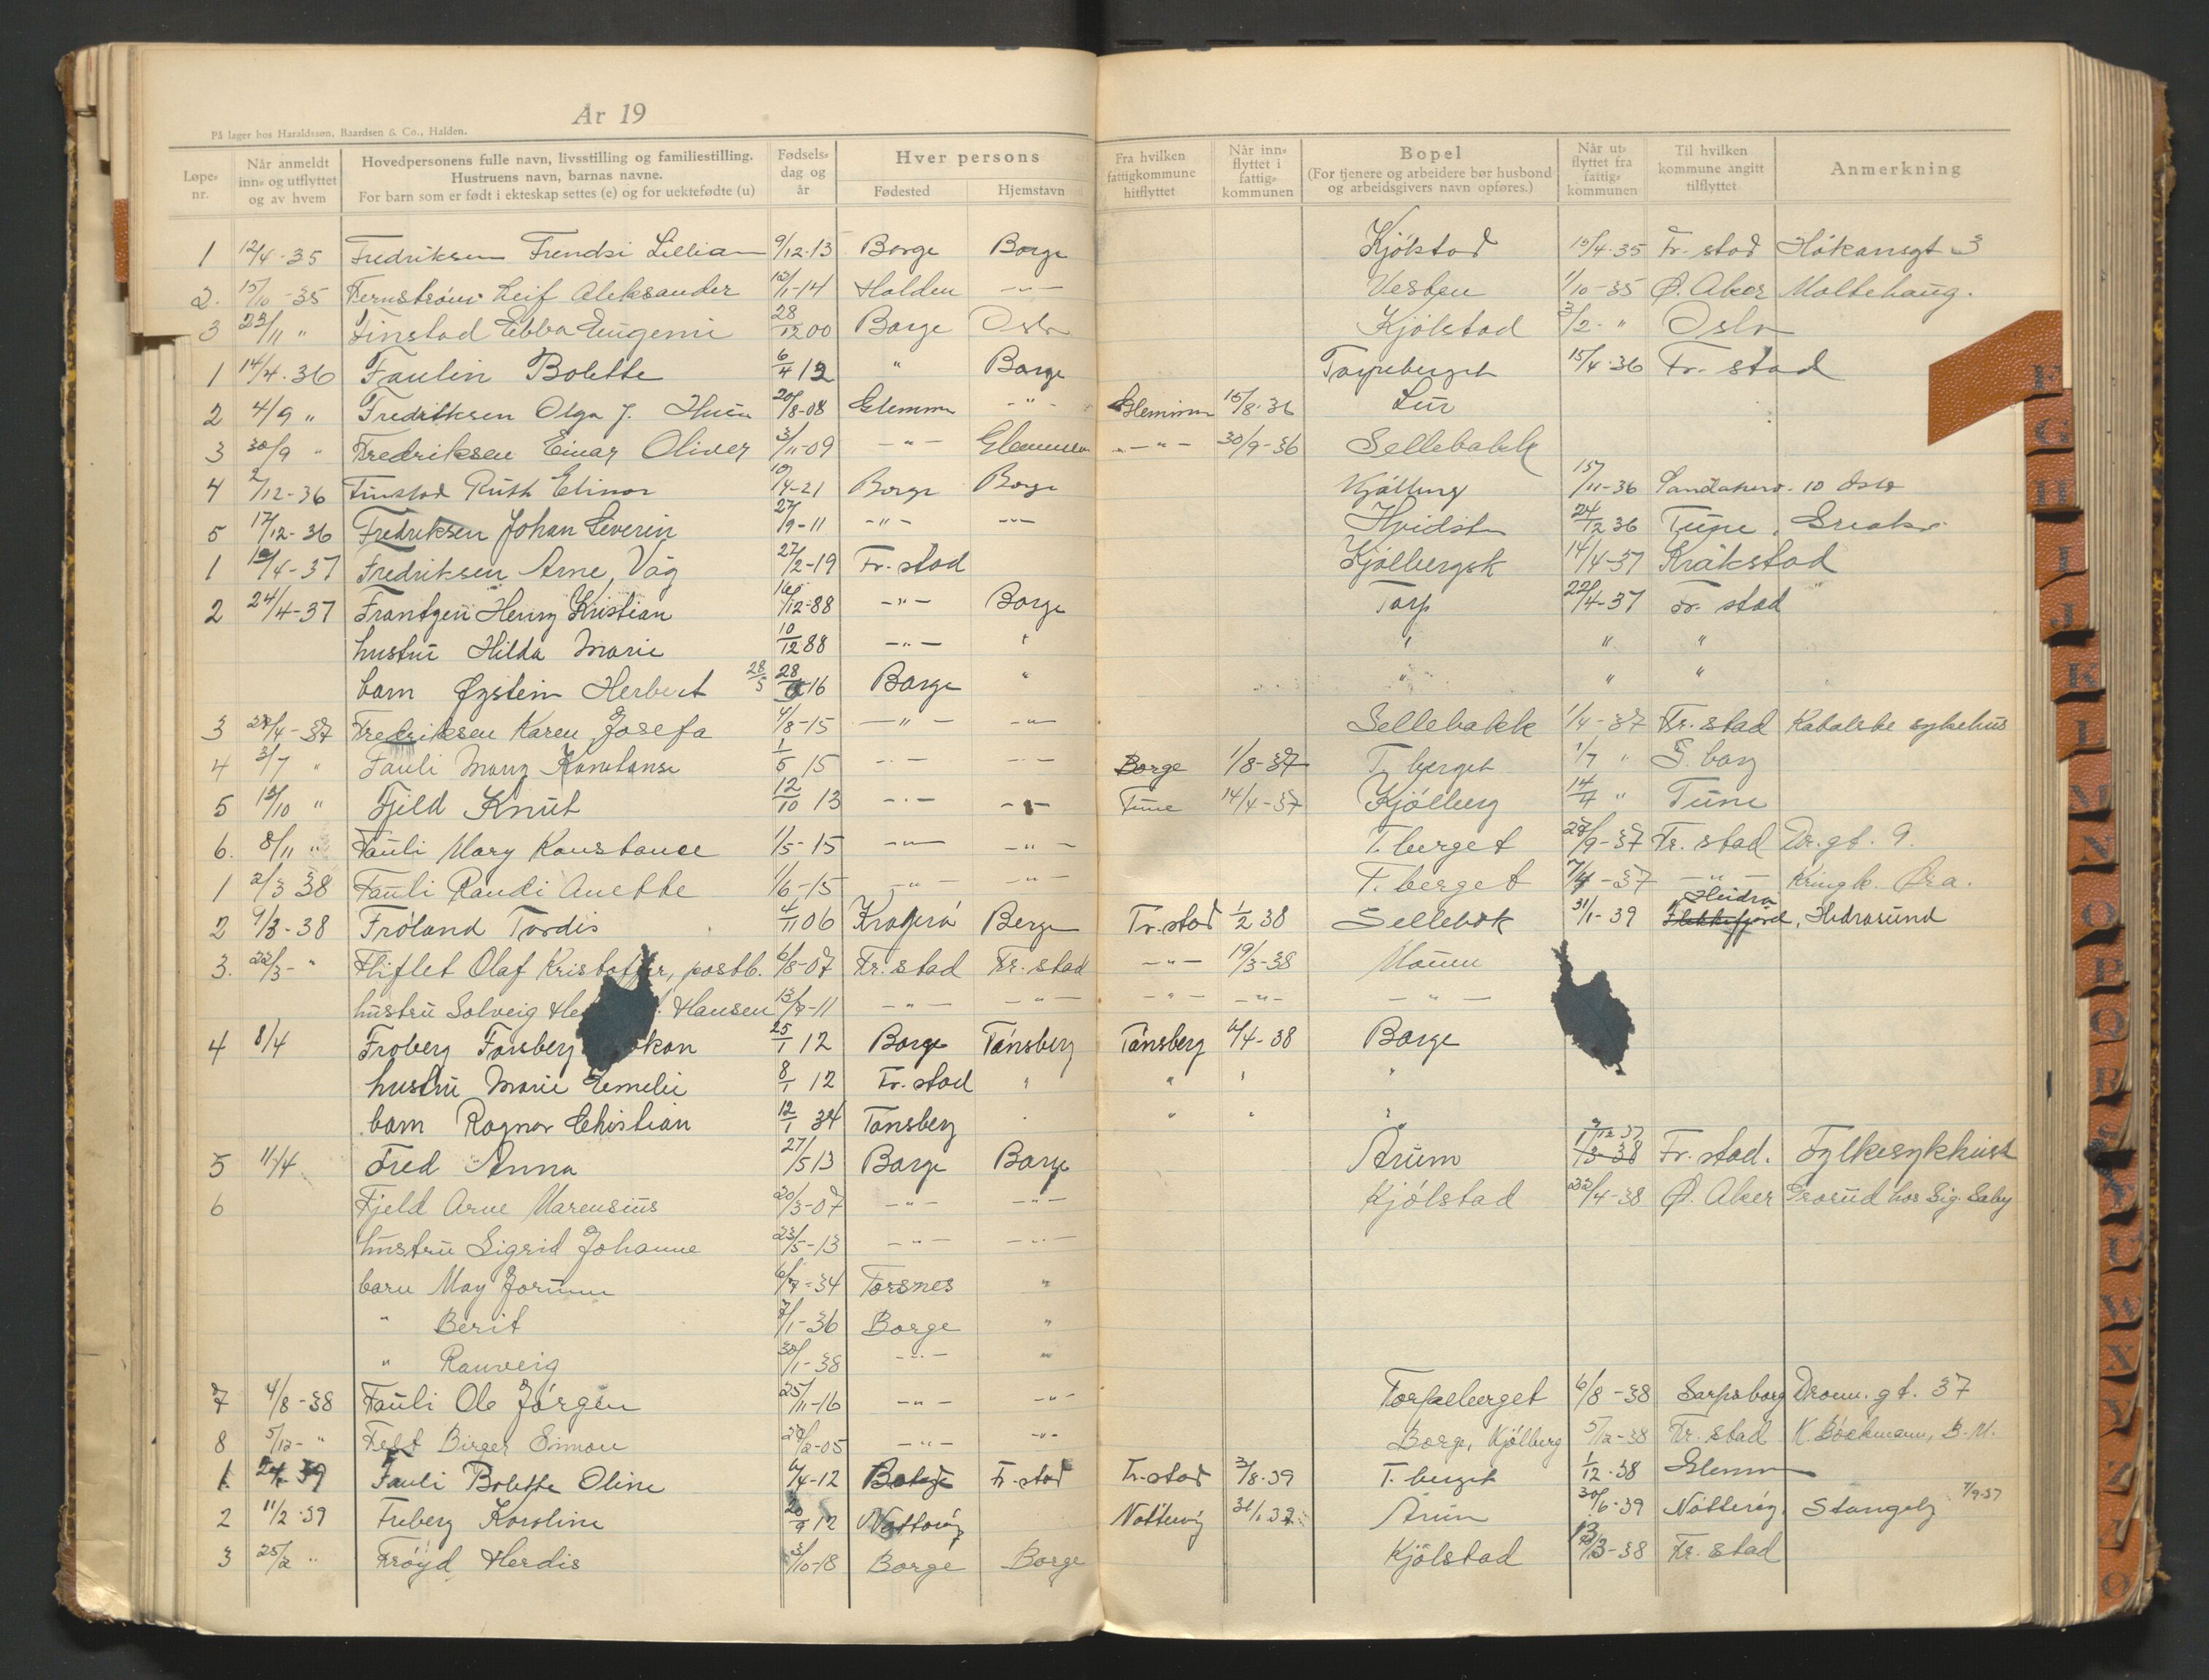 År 19
På lager hos Haraldssøn, Baardsen & Co., Halden.
Løpe-nr. | Når anmeldt inn- og utflyttet og av hvem | Hovedpersonens fulle navn, livsstilling og familiestilling. Hustruens navn, barnas navne. For barn som er født i ekteskap settes (e) og for uektefødte (u) | Fødsels-dag og år | Hver persons Fødested | Hjemstavn | Fra hvilken fattigkommune hitflyttet | Når inn-flyttet i fattig-kommunen | Bopel (For tjenere og arbeidere bør husbond og arbeidsgivers navn opføres.) | Når ut-flyttet fra fattig-kommunen | Til hvilken kommune angitt tilflyttet | Anmerkning
1 12/4-35 Fredriksen Lillian 9/12-13 Borge Borge Kjølstad 15/4-35 Fr.stad Håkonsgt 3
2. 15/10-35 Fernstrøm Leif Aleksander 12/11-14 Halden -"- Vesten 1/10-35 Ø. Aker Moltehaug.
3 23/11 " Finstad Ebba Eugenie 28/12 00 Borge Oslo Kjølstad 3/2- " Oslo
1 14/4-36 Faulin Bolette 6/4 12 " Borge Torpeberget 15/4-36 Fr.stad
2 4/9 " Fredriksen Olga J. 20/8-08 Glemmen -"- Glemmen 15/8-36 Lur
3 30/9 " Fredriksen Einar Oliver 3/11-09 -"- Glemmen -"- 30/9-36 Sellebakk
4 2/12-36 Finstad Ruth Elinor 19/4-21 Borge Borge Kjølberg 15/11-36 Sandakerv. 10 Oslo
5 17/12-36 Fredriksen Johan Severin 27/9-11 -"- -"- Hvidsten 24/12 36 Tune, Greaker
1 12/4-37 Fredriksen Arne, Våg 27/2-19 Fr.stad Kjølbergsk 14/4-37 Kråkstad
2 24/4-37 Frantzen Henry Kristian 16/12-88 -"- Borge Torp 22/4-37 Fr.stad "
hustru Hilda Marie 10/12 88 -"- " " " "
barn Øystein Herbert 28/5 28/5 16 Borge " " " "
3 28/4-37 Fredriksen Karen Josefa 4/8-15 -"- -"- Sellebakk 1/4-37 Fr.stad Katolske sykehus
4 3/7 " Fauli Mary Konstanse 1/5 15 -"- -"- Borge 1/8-37 T. berget 1/7 " S.borg
5 12/10 " Fjeld Knut 12/10 13 -"- -"- Tune 14/4-37 Kjølberg 14/4 " Tune
6. 8/11 " Fauli Mary Konstance 1/5-15 -"- -"- T. berget 27/9-37 Fr.stad Dr.gt. 9.
1 2/3 38 Fauli Randi Anette 1/6-15 -"- -"- T. berget 7/4-37 -"- Kringk. Øra.
2 9/3-38 Frøland Tordis 4/11 06 Kragerø Borge Fr.stad 1/2 38 Sellebakk 31/1-39 Heidra Flekkefjord, Hidrasund
3. 22/3- " Fliflet Olaf Kristoffer, postb. 6/8-07 Fr.stad Fr.stad -"- 19/3-38 Moum
hustru Solveig Hansen 13/8-11 -"- -"- -"- -"- -"-
4 8/4 Froberg Forsberg 25/1 12 Borge Tønsberg Tønsberg 6/4-38 Borge
hustru Marie Emelie 8/1 12 Fr.stad " " " "
barn Ragnar Christian 12/1 34 Tønsberg " " " "
5 11/4 Fred Anna 27/5 13 Borge Borge Årum 1/3-38 Fr.stad. Fylkesykehuset
6 Fjeld Arne Marensius 20/3-07 -"- -"- Kjølstad 22/4-38 Ø. Aker Grorud hos Sig. Saby
hustru Sigrid Johanne 23/5-13 -"- -"-
barn May Jorunn 6/7-34 Torsnes "
" Berit 7/1-36 Borge "
" Ranveig 30/1-38 -"- "
7 4/8-38 Fauli Ole Jørgen 25/11-16 -"- -"- Torpeberget 6/8-38 Sarpsborg Dronn.gt. 37
8 5/12- " Felt Birger Simon 27/2-05 -"- -"- Borge, Kjølberg 5/12-38 Fr.stad K. Bøckmann, B.M.
1 39 Fauli Bolette Oline 6/4-12 Borge Fr.stad Fr.stad 3/8-39 T. berget 1/12-38 Glemmen
2 11/2-39 Friberg Karoline 20/9 12 Nøtterøy Nøtterøy 31/1-39 Årum 30/6-39 Nøtterøy. 7/9-37
3 25/2 " Frøyd Herdis 3/10-18 Borge Borge Kjølstad 13/3-38 Fr.stad